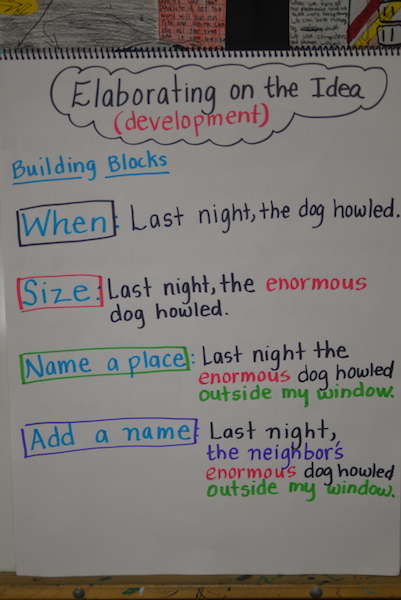 Elaborating on the Idea
(development)
Building Blocks
When: Last night, the dog howled.
Size: Last night, the enormous
dog howled.
Name a place: Last night the
enormous dog howled
outside my window.
Add a name: Last night,
the neighbor's
enormous dog howled
outside my window.